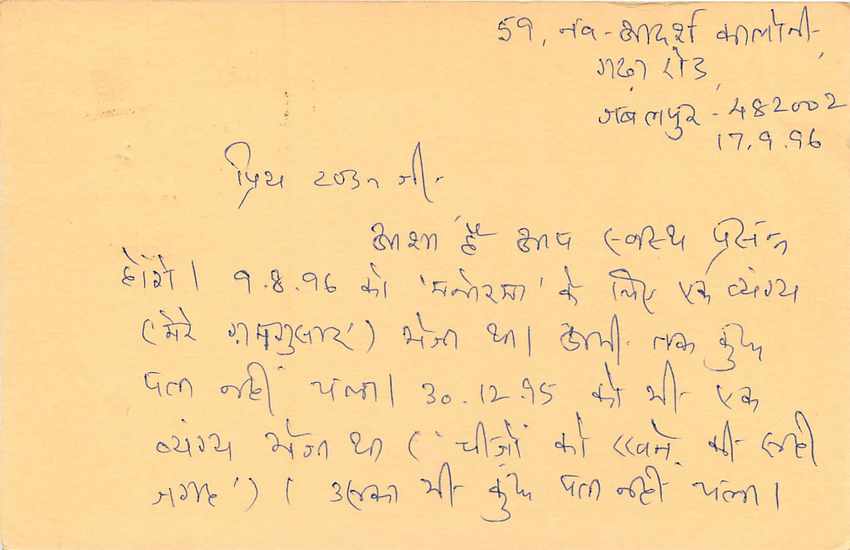 59, नव-आदर्श कालोनी,
गढ़ा रोड,
जबलपुर - 482002
17.9.96
प्रिय जी-
आशा है आप स्वस्थ प्रसन्न
होंगे। 9.8.96 को 'मनोरमा' के लिए एक व्यंग्य
('मेरे ग़मगुसार') भेजा था। अभी तक कुछ
पता नहीं चला। 30.12.95 को भी एक
व्यंग्य भेजा था ('चीजों को रखने की सही
जगह')। उसका भी कुछ पता नहीं चला।